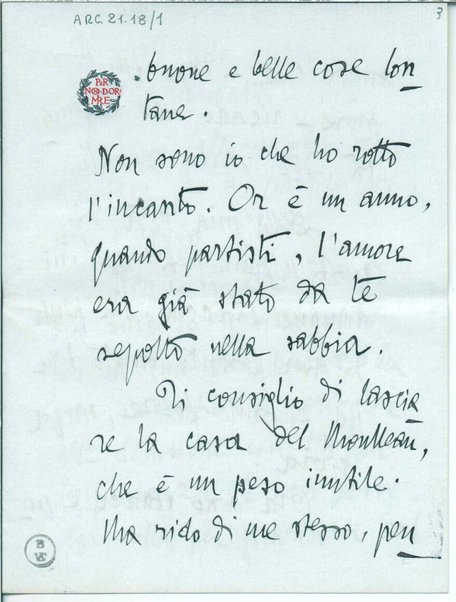 ARC. 21.18/1
3
PER
NON DOR
MIRE
buone e belle cose lon
tane.
Non sono io che ho rotto
l'incanto. Or è un anno,
quando partisti, l'amore
era già stato da te
sepolto nella sabbia.
Ti consiglio di lascia
re la casa del Moulleau,
che è un peso inutile.
Ma rido di me stesso, pen
B
VE